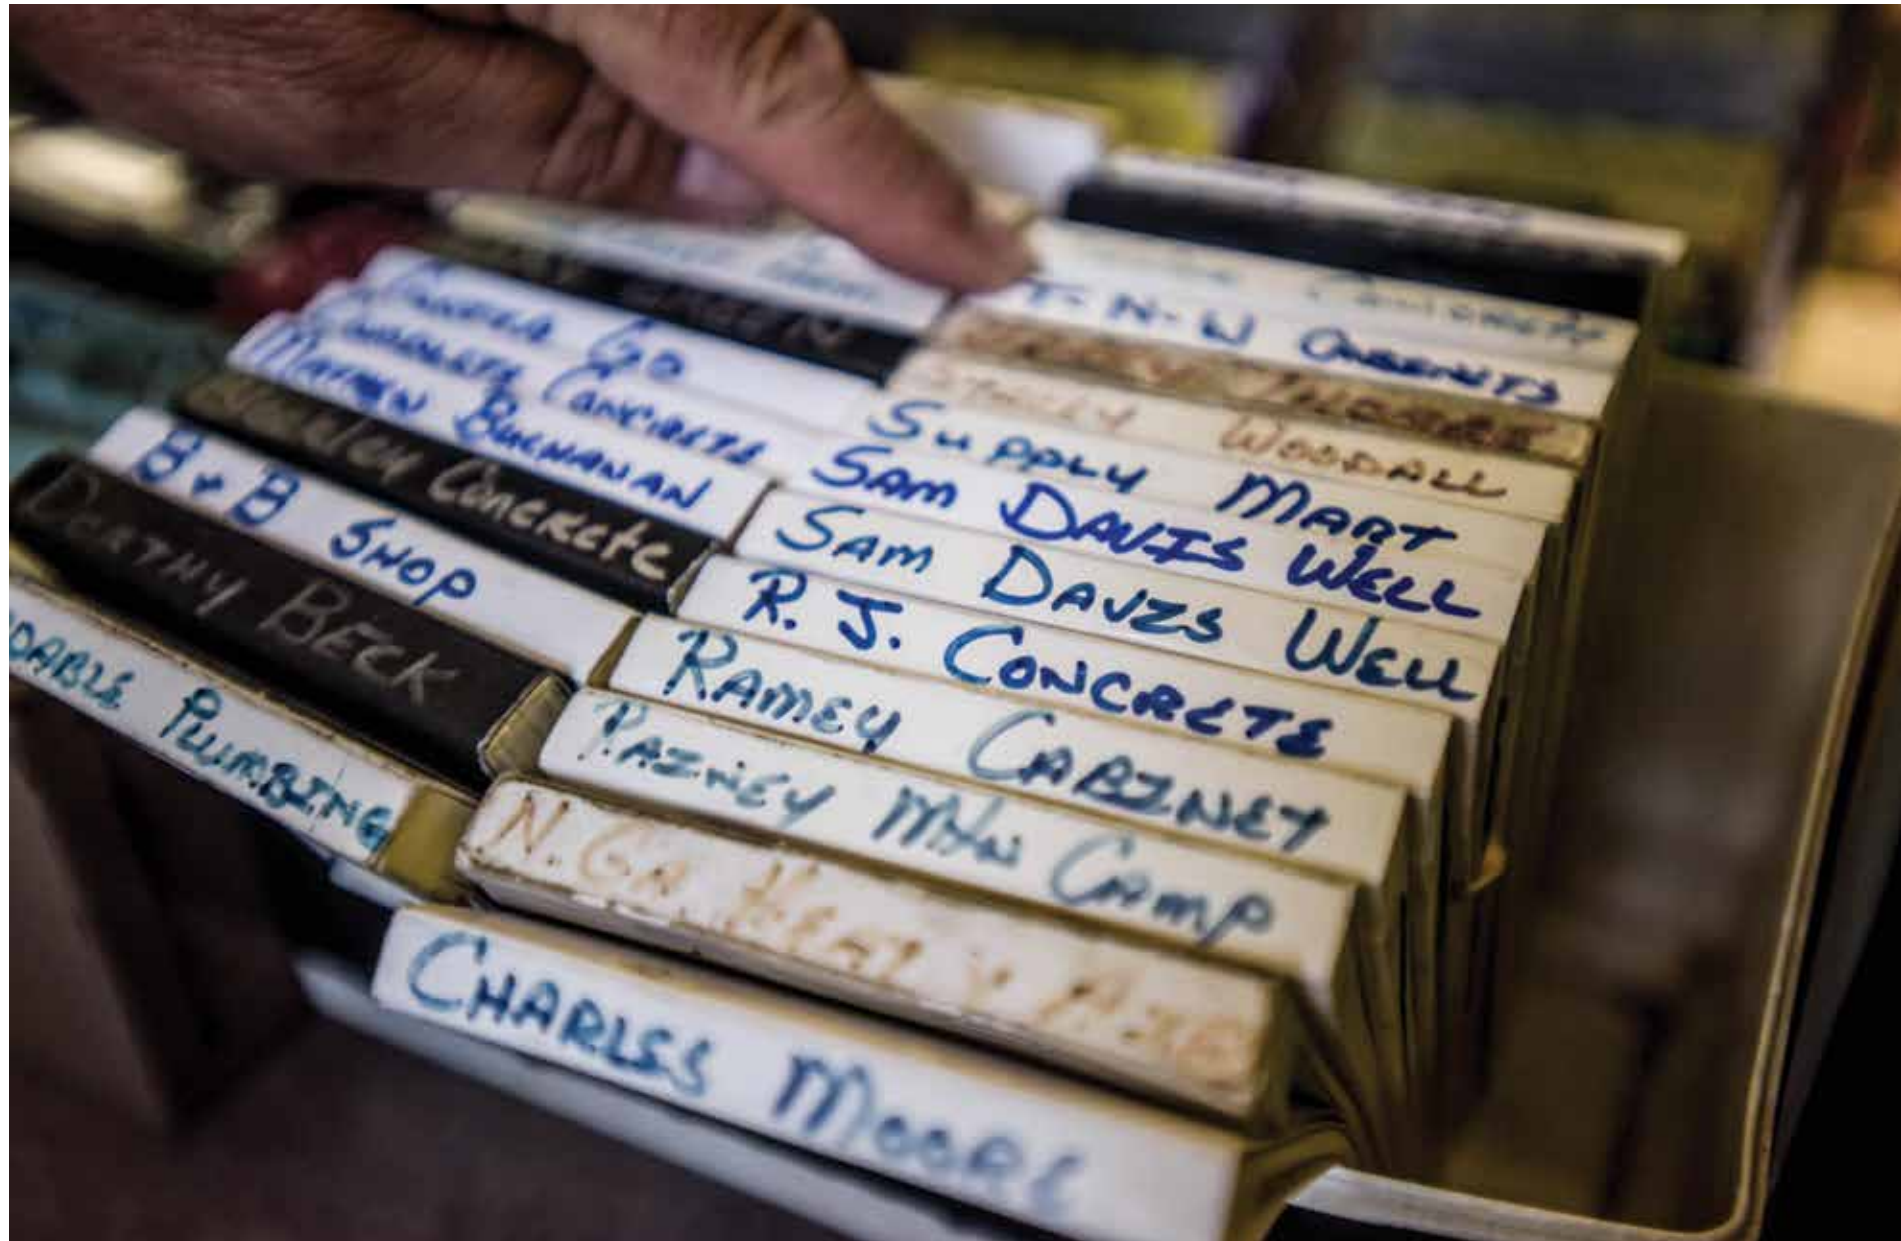 GO
CONCRETE
MATHEW BUCHANAN
CONCRETE
B & B SHOP
DORTHY BECK
DABLE PLUMBING
CONCRETE
T-N-W CABENITS
WOODALL
SUPPLY MART
SAM DAVIS WELL
SAM DAVIS WELL
R. J. CONCRETE
RAMEY CABINEY
RAINEY MTN CAMP
N. GA HEAT & AIR
CHARLES MOORE